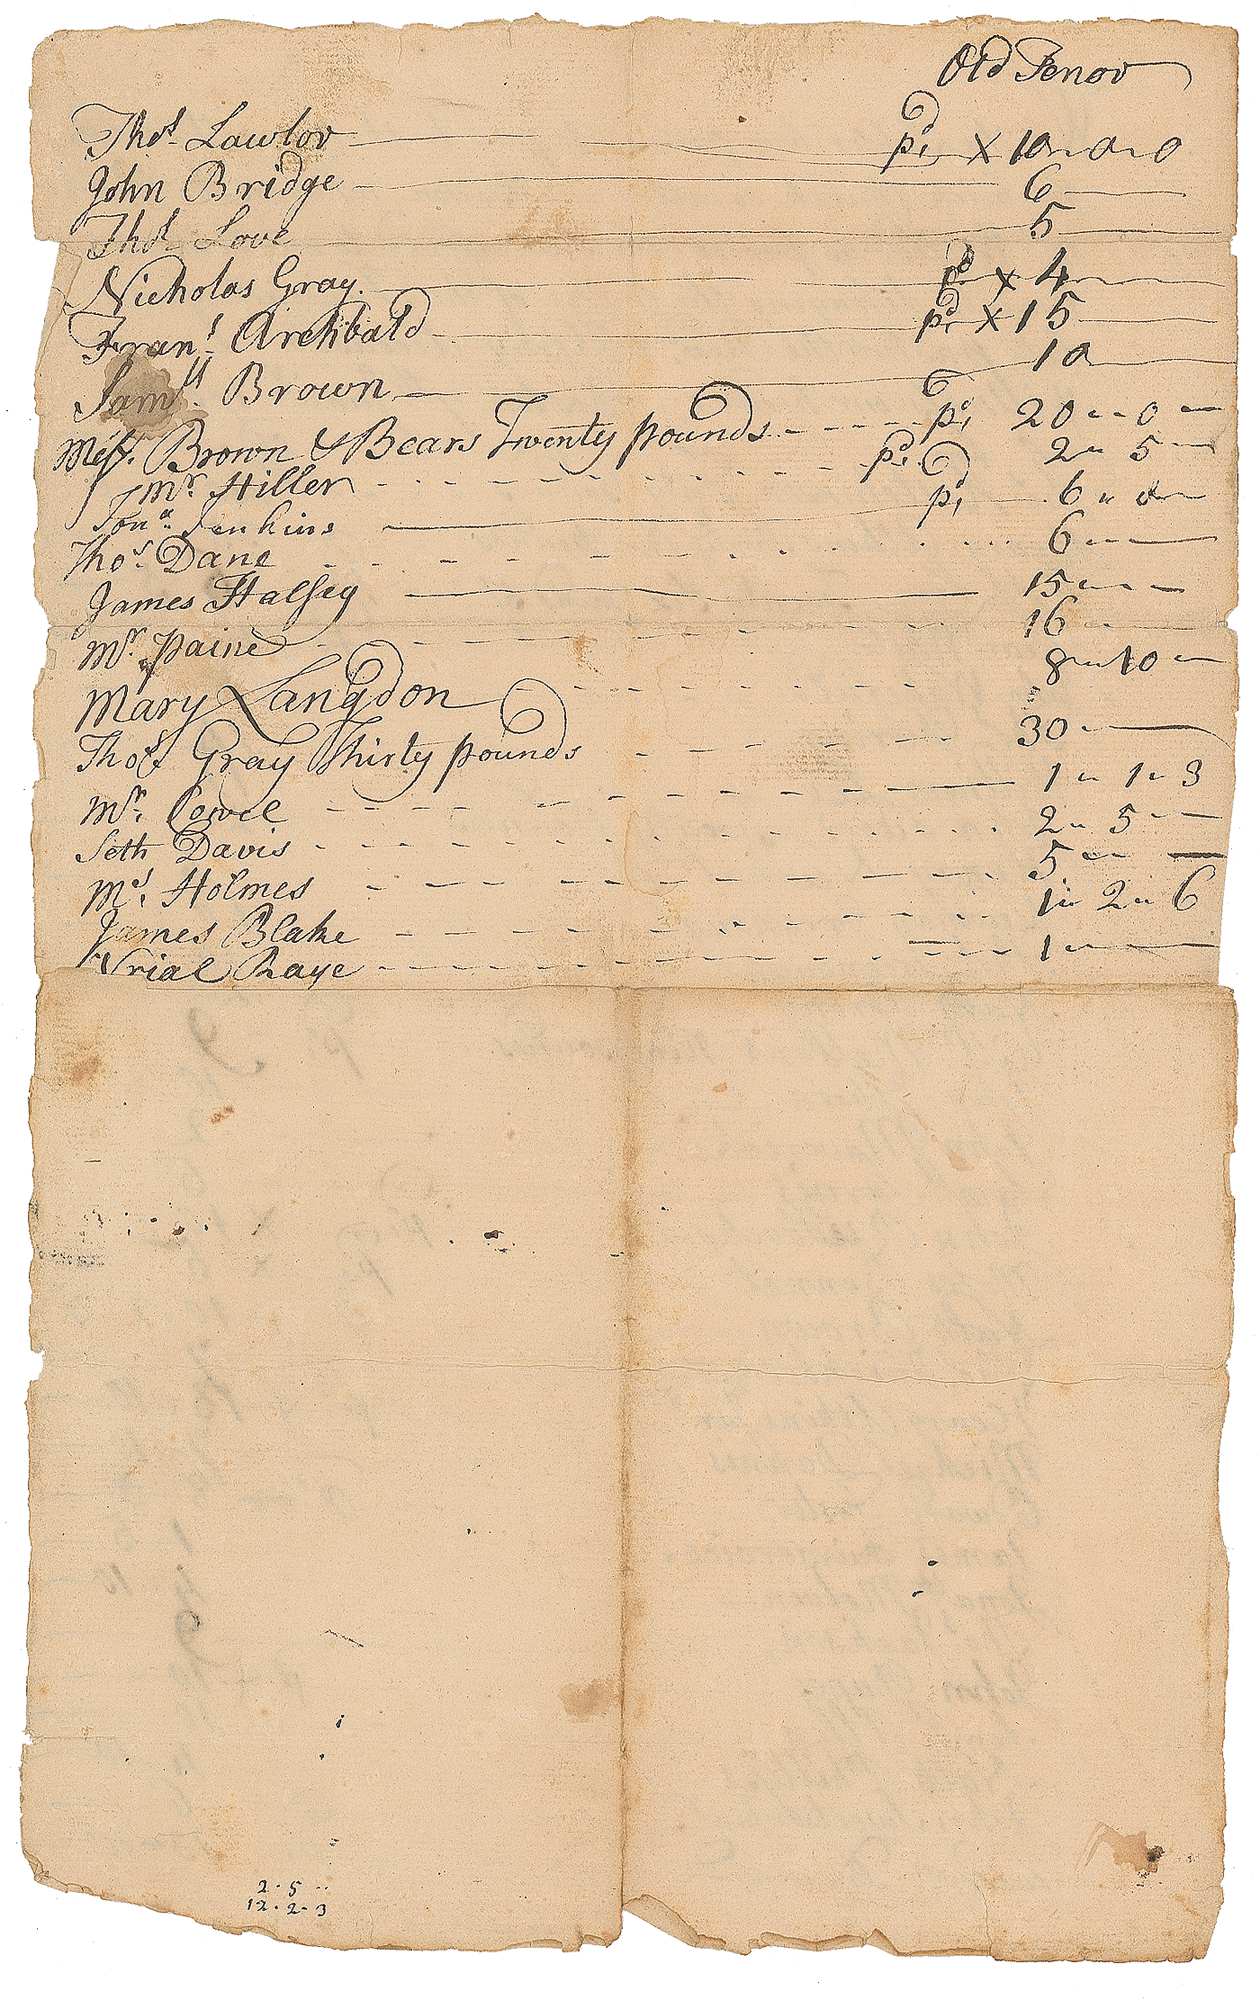 Old Tenor
Thos. Lawlor pd. X 10 „ 0 „ 0
John Bridge 6
Thos. Love 5
Nicholas Gray. pd. X 4
Frans. Archbald pd. X 15
Saml. Brown 10
Mess. Brown & Bears Twenty pounds pd. 20 „ 0
Mr. Hiller pd. 2 „ 5
Jona. Jenkins pd. 6 „ 0
Thos. Dane 6
James Halsey 15
Mr. Paine 16
Mary Langdon 8 „ 10
Thos. Gray Thirty pounds 30
Mr. 1 „ 1 „ 3
Seth Davis 2 „ 5
Ms. Holmes 5
James Blake 1 „ 2 „ 6
Urial Raye 1
2 . 5
12 . 2 . 3